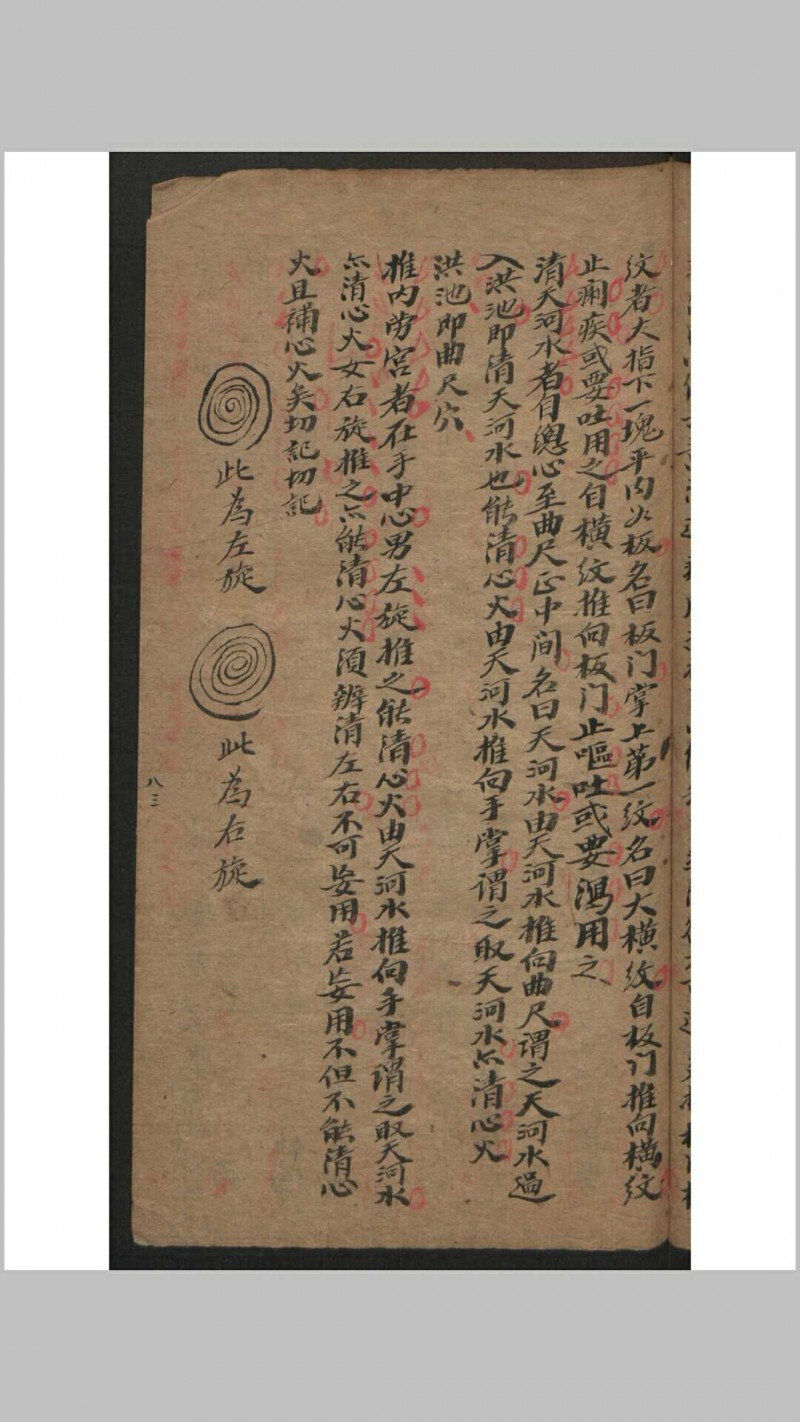 纹者大指下一塊平肉如板名曰板门掌上苐一纹名曰大横纹自板门推向横纹
止痢疾或要吐用之自横纹推向板门止嘔吐或要瀉用之
清天河水者自總心至曲尺正中间名曰天河水由天河水推向曲尺谓之天河水過
入洪池即清天河水也能清心火由天河水推向手掌谓之取天河水亦清心火
洪池即曲尺穴
推内劳宫者在手中心男左旋推之能清心火由天河水推向手掌谓之取天河水
亦清心火女右旋推之亦能清心火须辨清左右不可妄用若妄用不但不能清心
火且補心火矣切記切記
此為左旋
此為右旋
八三